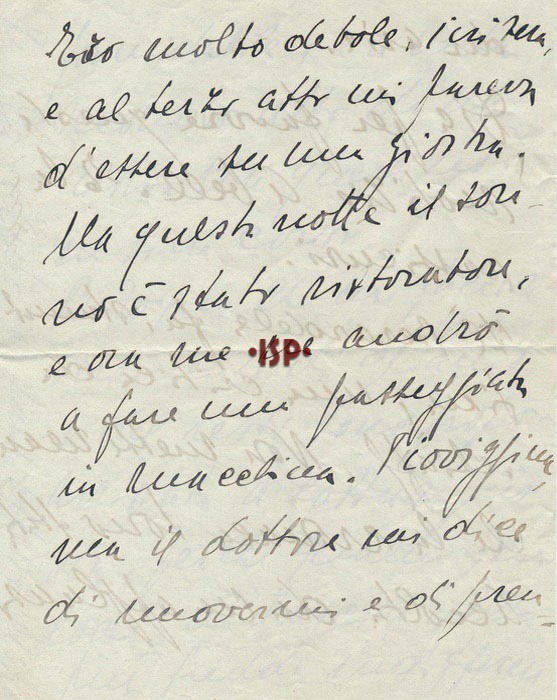 Ero molto debole, ieri sera,
e al terzo atto mi pareva
d'essere su una giostra.
Ma questa notte il son-
no è stato ristoratore,
e ora me ne andrò
·ISP·
a fare una passeggiata
in macchina. Pioviggina,
ma il dottore mi dice
di muovermi e di pren-